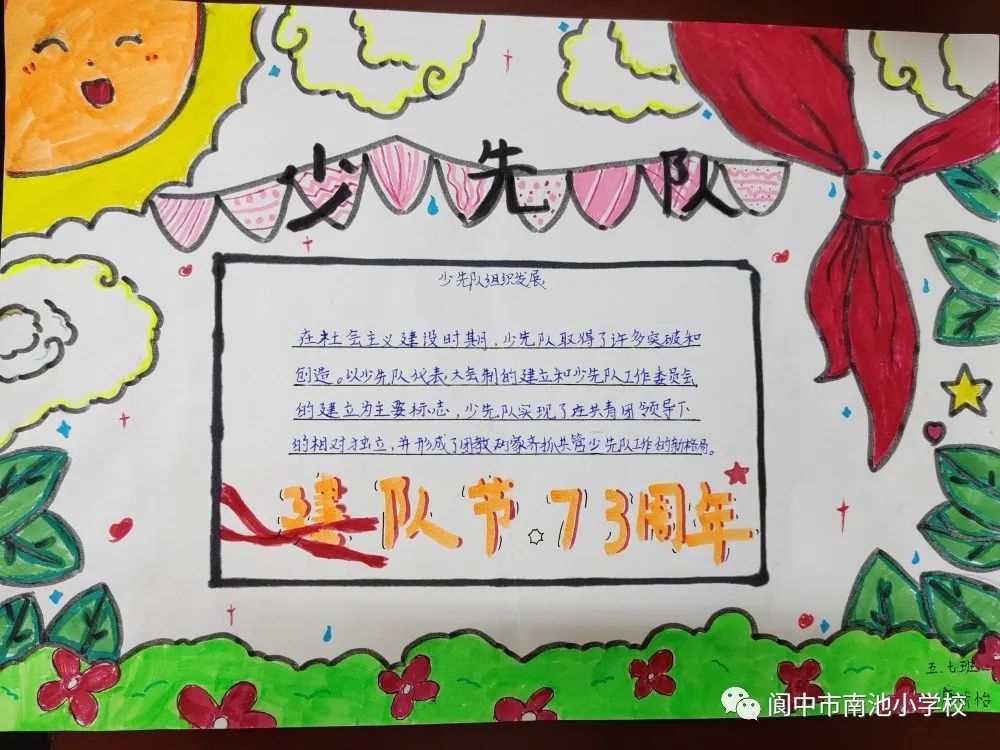 少先队
少先队组织发展
在社会主义建设时期，少先队取得了许多突破和
创造。以少先队代表大会制的建立和少先队工作委员会
的建立为主要标志，少先队实现了在共青团领导下
的相对独立，并形成了团教两家齐抓共管少先队工作的新格局。
建队节.73周年
五.七班
怡
阆中市南池小学校